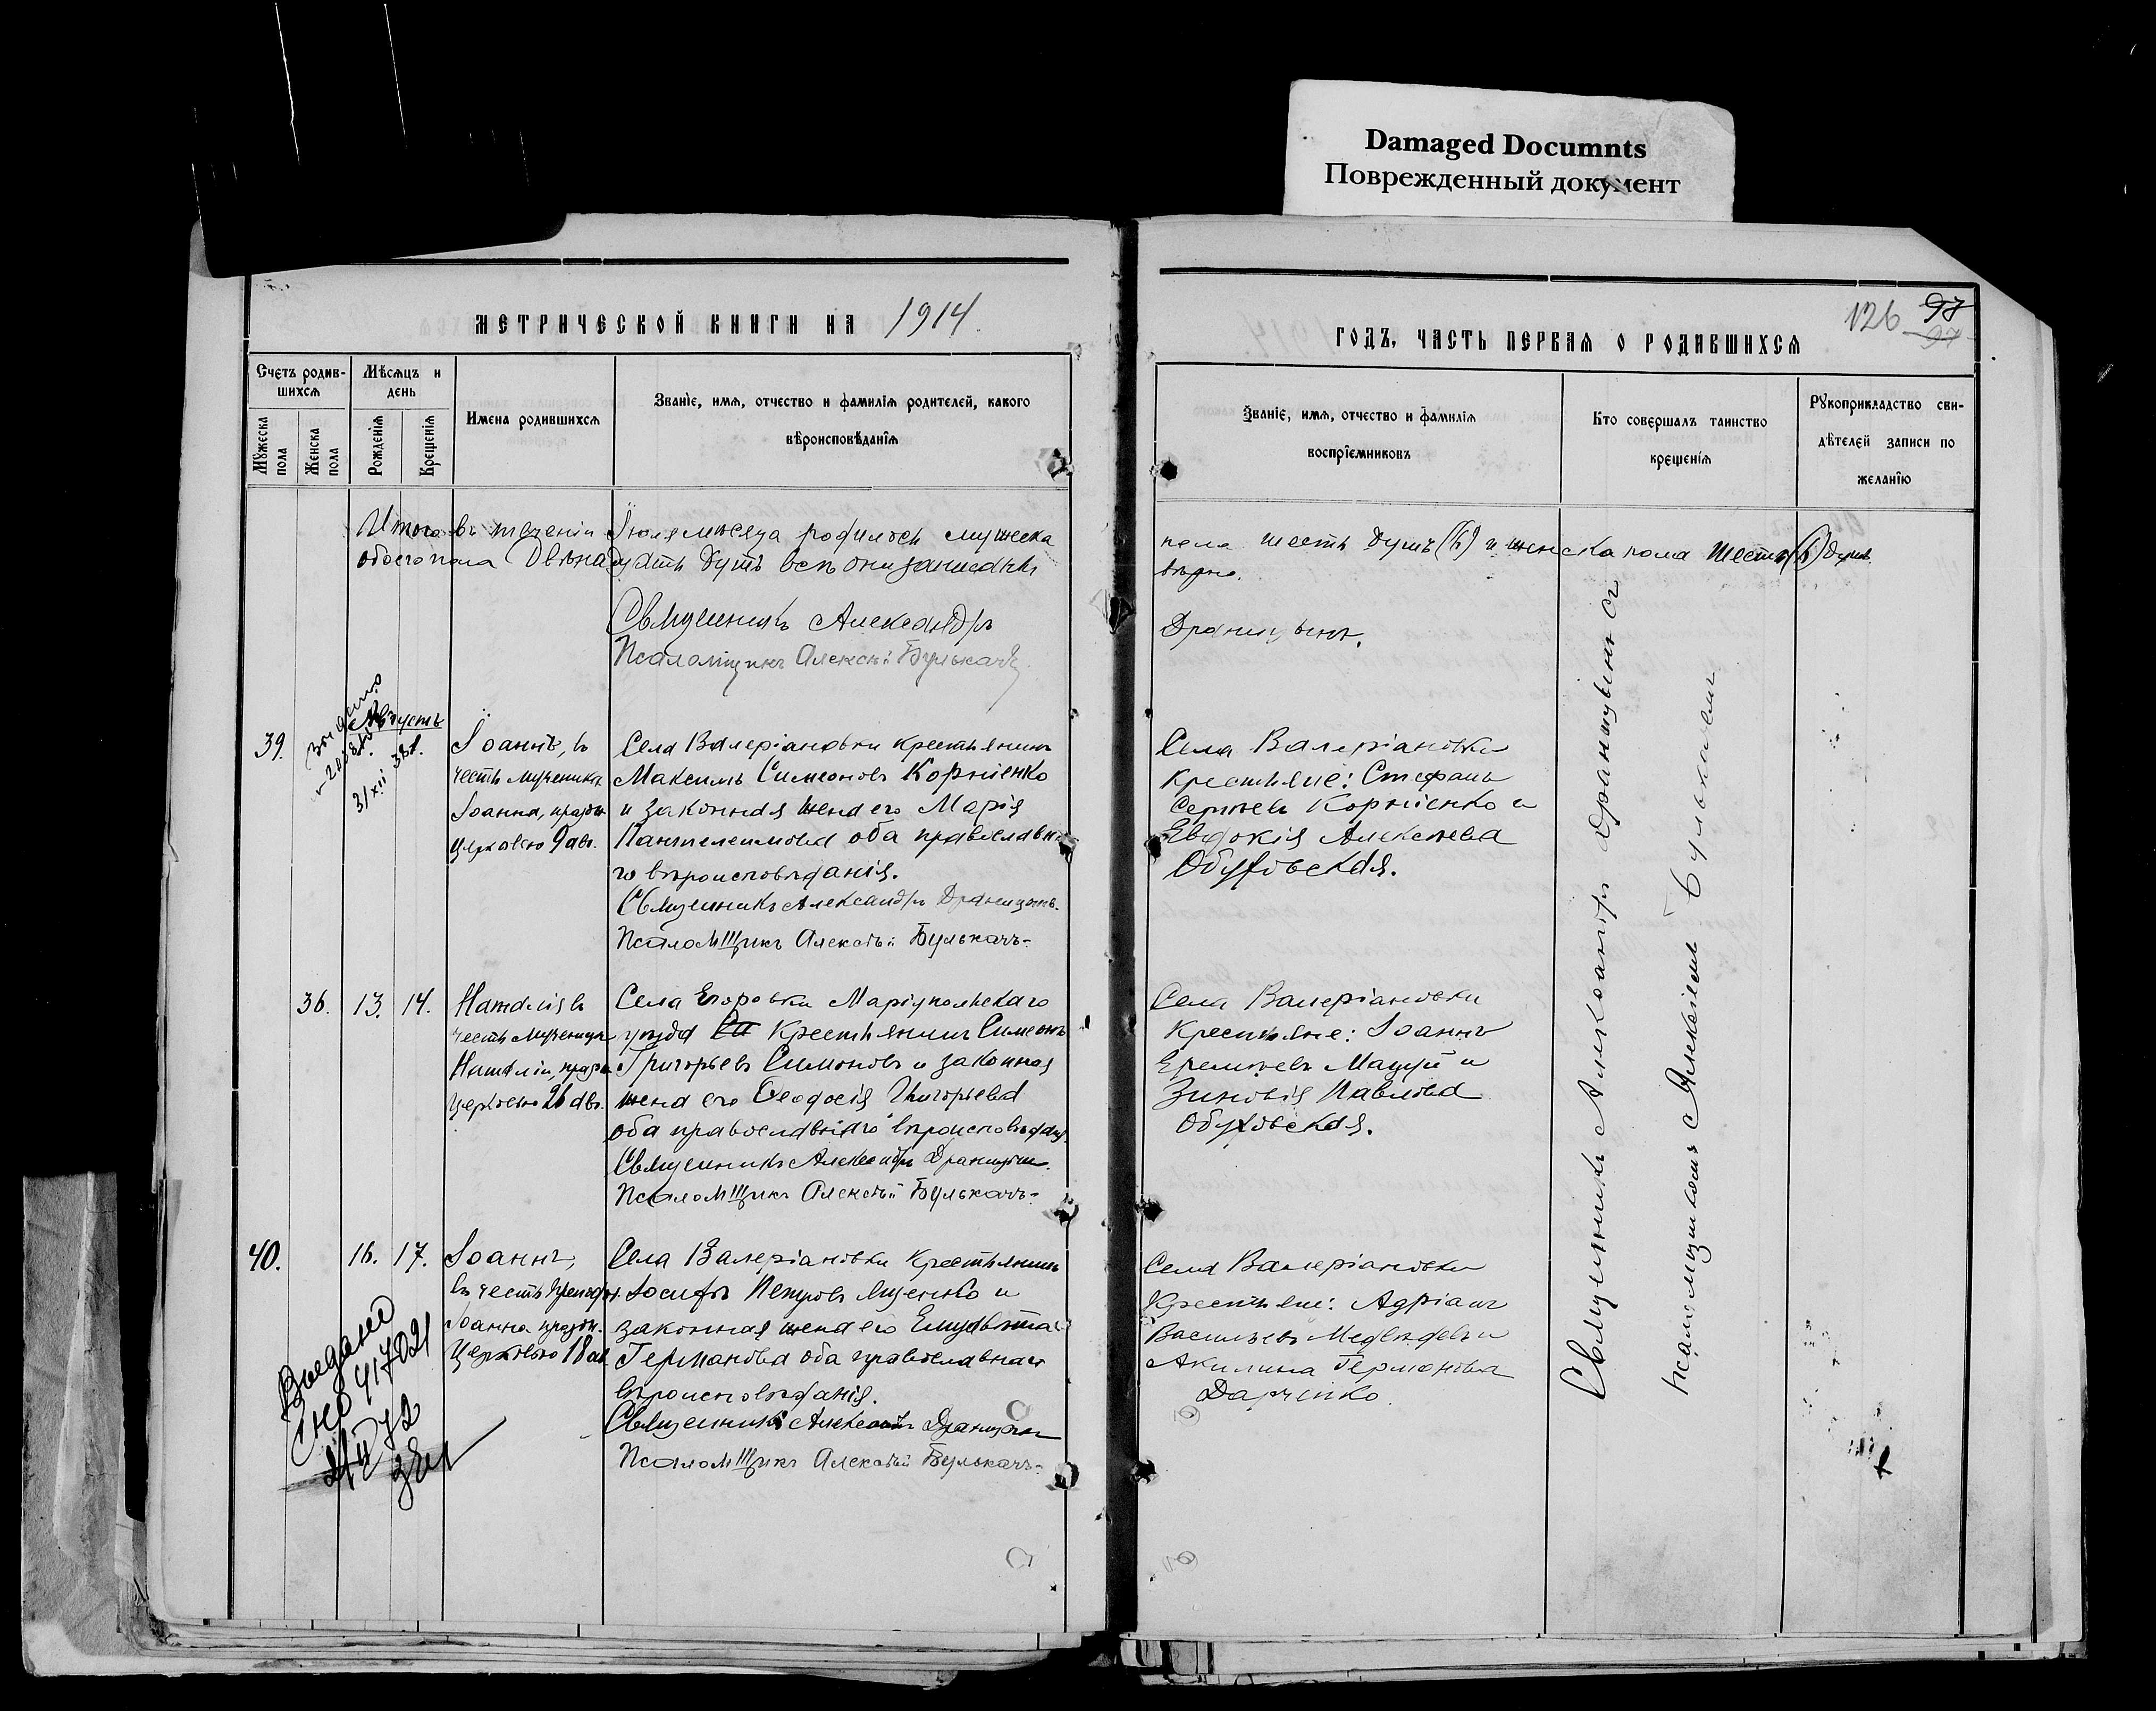 Damaged Documnts
Поврежденный документ
МЕТРИЧЕСКОЙ КНИГИ НА 1914.
Счетъ родив-
шихся
Мѣсяцъ и
день
Мужеска пола
Женска пола
Рожденія
Крещенія
Имена родившихся
Званіе, имя, отчество и фамилія родителей, какого
вѣроисповѣданія
Итого въ теченіи Іюля мѣсяца родилось мужеска
обоего пола двѣнадцать душъ всѣ они записаны
Священникъ Александръ
Псаломщикъ Алексѣй Булькачъ
Августъ
39.
31 XII
Іоаннъ, въ
честь мученика
Іоанна, праздн.
церковію 9 авг.
Села Валеріановки крестьянинъ
Максимъ Симеоновъ Корніенко
и законная жена его Марія
Пантелеимова оба православна
го вѣроисповѣданія.
Священникъ Александръ Драницынъ.
Псаломщикъ Алексѣй Булькачъ.
36. 13. 14.
Наталія въ
честь мученицы
Наталіи, праздн.
церковію 26 авг.
Села Егоровки Маріупольскаго
уѣзда крестьянинъ Симеонъ
Григорьевъ Симоновъ и законная
жена его Ѳеодосія Григорьева
оба православнаго вѣроисповѣдан.
Священникъ Александръ Драницынъ.
Псаломщикъ Алексѣй Булькачъ.
40. 16. 17.
Іоаннъ,
въ честь Преподобн.
Іоанна праздн.
церковію 18 авг.
Села Валеріановки крестьянинъ
Іосифъ Петровъ Лизенко и
законная жена его Елизавета
Германова оба православнаго
вѣроисповѣданія.
Священникъ Александръ Драницынъ
Псаломщикъ Алексѣй Булькачъ.
Выдано
417021
72
126 97
ГОДЪ, ЧАСТЬ ПЕРВАЯ О РОДИВШИХСЯ
Званіе, имя, отчество и фамилія
воспріемниковъ
Кто совершалъ таинство
крещенія
Рукоприкладство сви-
дѣтелей записи по
желанію
пола шесть душъ (6) и женска пола шесть (6) душъ.
вѣрно.
Драницынъ.
Села Валеріановки
крестьяне: Стефанъ
Сергѣевъ Корніенко и
Евдокія Алексѣева
Обуховская.
Села Валеріановки
крестьяне: Іоаннъ
Еремѣевъ Мацуй и
Зиновія Павлова
Обуховская.
Села Валеріановки
крестьяне: Адріанъ
Васильевъ Медвѣдевъ и
Акилина Германова
Дарченко.
Священникъ Александръ Драницынъ съ
псаломщикомъ Алексѣемъ Булькачемъ